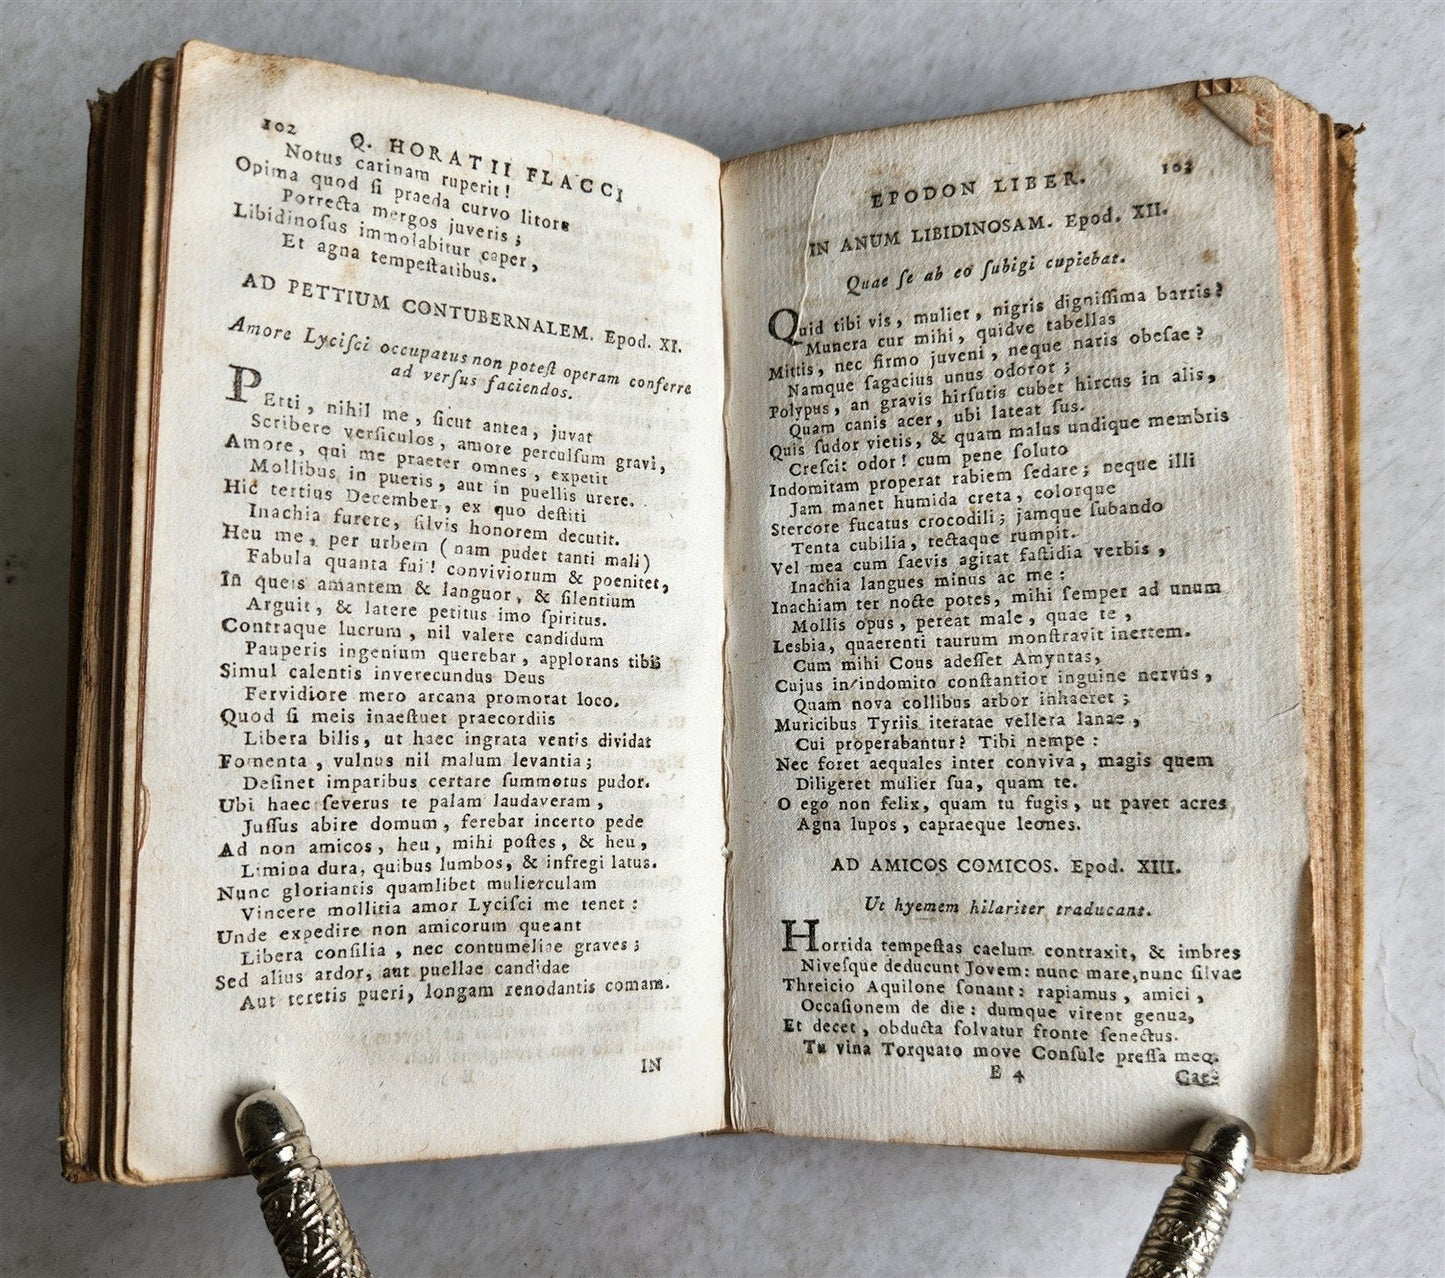 102
Q. HORATII FLACCI
Notus carinam ruperit!
Opima quod ſi praeda curvo litore
Porrecta mergos juveris;
Libidinoſus immolabitur caper,
Et agna tempeſtatibus.
AD PETTIUM CONTUBERNALEM. Epod. XI.
Amore Lyciſci occupatus non poteſt operam conferre
ad verſus faciendos.
PEtti, nihil me, ſicut antea, juvat
Scribere verſiculos, amore perculſum gravi,
Amore, qui me praeter omnes, expetit
Mollibus in pueris, aut in puellis urere.
Hic tertius December, ex quo deſtiti
Inachia furere, ſilvis honorem decutit.
Heu me, per urbem (nam pudet tanti mali)
Fabula quanta fui! conviviorum & poenitet,
In queis amantem & languor, & ſilentium
Arguit, & latere petitus imo ſpiritus.
Contraque lucrum, nil valere candidum
Pauperis ingenium querebar, applorans tibi:
Simul calentis inverecundus Deus
Fervidiore mero arcana promorat loco.
Quod ſi meis inaeſtuet praecordiis
Libera bilis, ut haec ingrata ventis dividat
Fomenta, vulnus nil malum levantia;
Deſinet imparibus certare ſummotus pudor.
Ubi haec ſeverus te palam laudaveram,
Juſſus abire domum, ferebar incerto pede
Ad non amicos, heu, mihi poſtes, & heu,
Limina dura, quibus lumbos, & infregi latus.
Nunc gloriantis quamlibet mulierculam
Vincere mollitia amor Lyciſci me tenet:
Unde expedire non amicorum queant
Libera conſilia, nec contumeliae graves;
Sed alius ardor, aut puellae candidae
Aut teretis pueri, longam renodantis comam.
IN
EPODON LIBER. 103
IN ANUM LIBIDINOSAM. Epod. XII.
Quae ſe ab eo ſubigi cupiebat.
Quid tibi vis, mulier, nigris digniſſima barris?
Munera cur mihi, quidve tabellas
Mittis, nec firmo juveni, neque naris obeſae?
Namque ſagacius unus odoror;
Polypus, an gravis hirſutis cubet hircus in alis,
Quam canis acer, ubi lateat ſus.
Quis ſudor vietis, & quam malus undique membris
Creſcit odor! cum pene ſoluto
Indomitam properat rabiem ſedare; neque illi
Jam manet humida creta, colorque
Stercore fucatus crocodili; jamque ſubando
Tenta cubilia, tectaque rumpit.
Vel mea cum ſaevis agitat faſtidia verbis,
Inachia langues minus ac me:
Inachiam ter nocte potes, mihi ſemper ad unum
Mollis opus, pereat male, quae te,
Lesbia, quaerenti taurum monſtravit inertem.
Cum mihi Cous adeſſet Amyntas,
Cujus in indomito conſtantior inguine nervus,
Quam nova collibus arbor inhaeret;
Muricibus Tyriis iteratae vellera lanae,
Cui properabantur? Tibi nempe:
Nec foret aequales inter conviva, magis quem
Diligeret mulier ſua, quam te.
O ego non felix, quam tu fugis, ut pavet acres
Agna lupos, capraeque leones.
AD AMICOS COMICOS. Epod. XIII.
Ut hyemem hilariter traducant.
Horrida tempeſtas caelum contraxit, & imbres
Niveſque deducunt Jovem: nunc mare, nunc ſilvae
Threicio Aquilone ſonant: rapiamus, amici,
Occaſionem de die: dumque virent genua,
Et decet, obducta ſolvatur fronte ſenectus.
Tu vina Torquato move Conſule preſſa meo.
E 4
Cae-